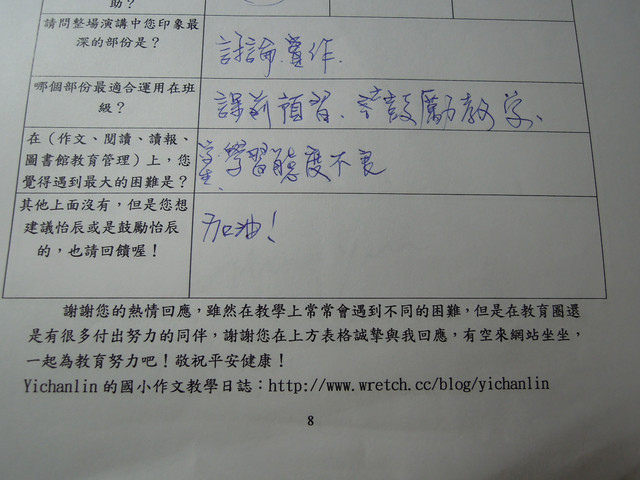 助？
請問整場演講中您印象最
深的部份是？
討論.實作.
哪個部份最適合運用在班
級？
課前預習、鼓勵教學、
在（作文、閱讀、讀報、
圖書館教育管理）上，您
覺得遇到最大的困難是？
學生學習態度不良
其他上面沒有，但是您想
建議怡辰或是鼓勵怡辰
的，也請回饋喔！
加油！
謝謝您的熱情回應，雖然在教學上常常會遇到不同的困難，但是在教育圈還
是有很多付出努力的同伴，謝謝您在上方表格誠摯與我回應，有空來網站坐坐，
一起為教育努力吧！敬祝平安健康！
Yichanlin 的國小作文教學日誌：http://www.wretch.cc/blog/yichanlin
8